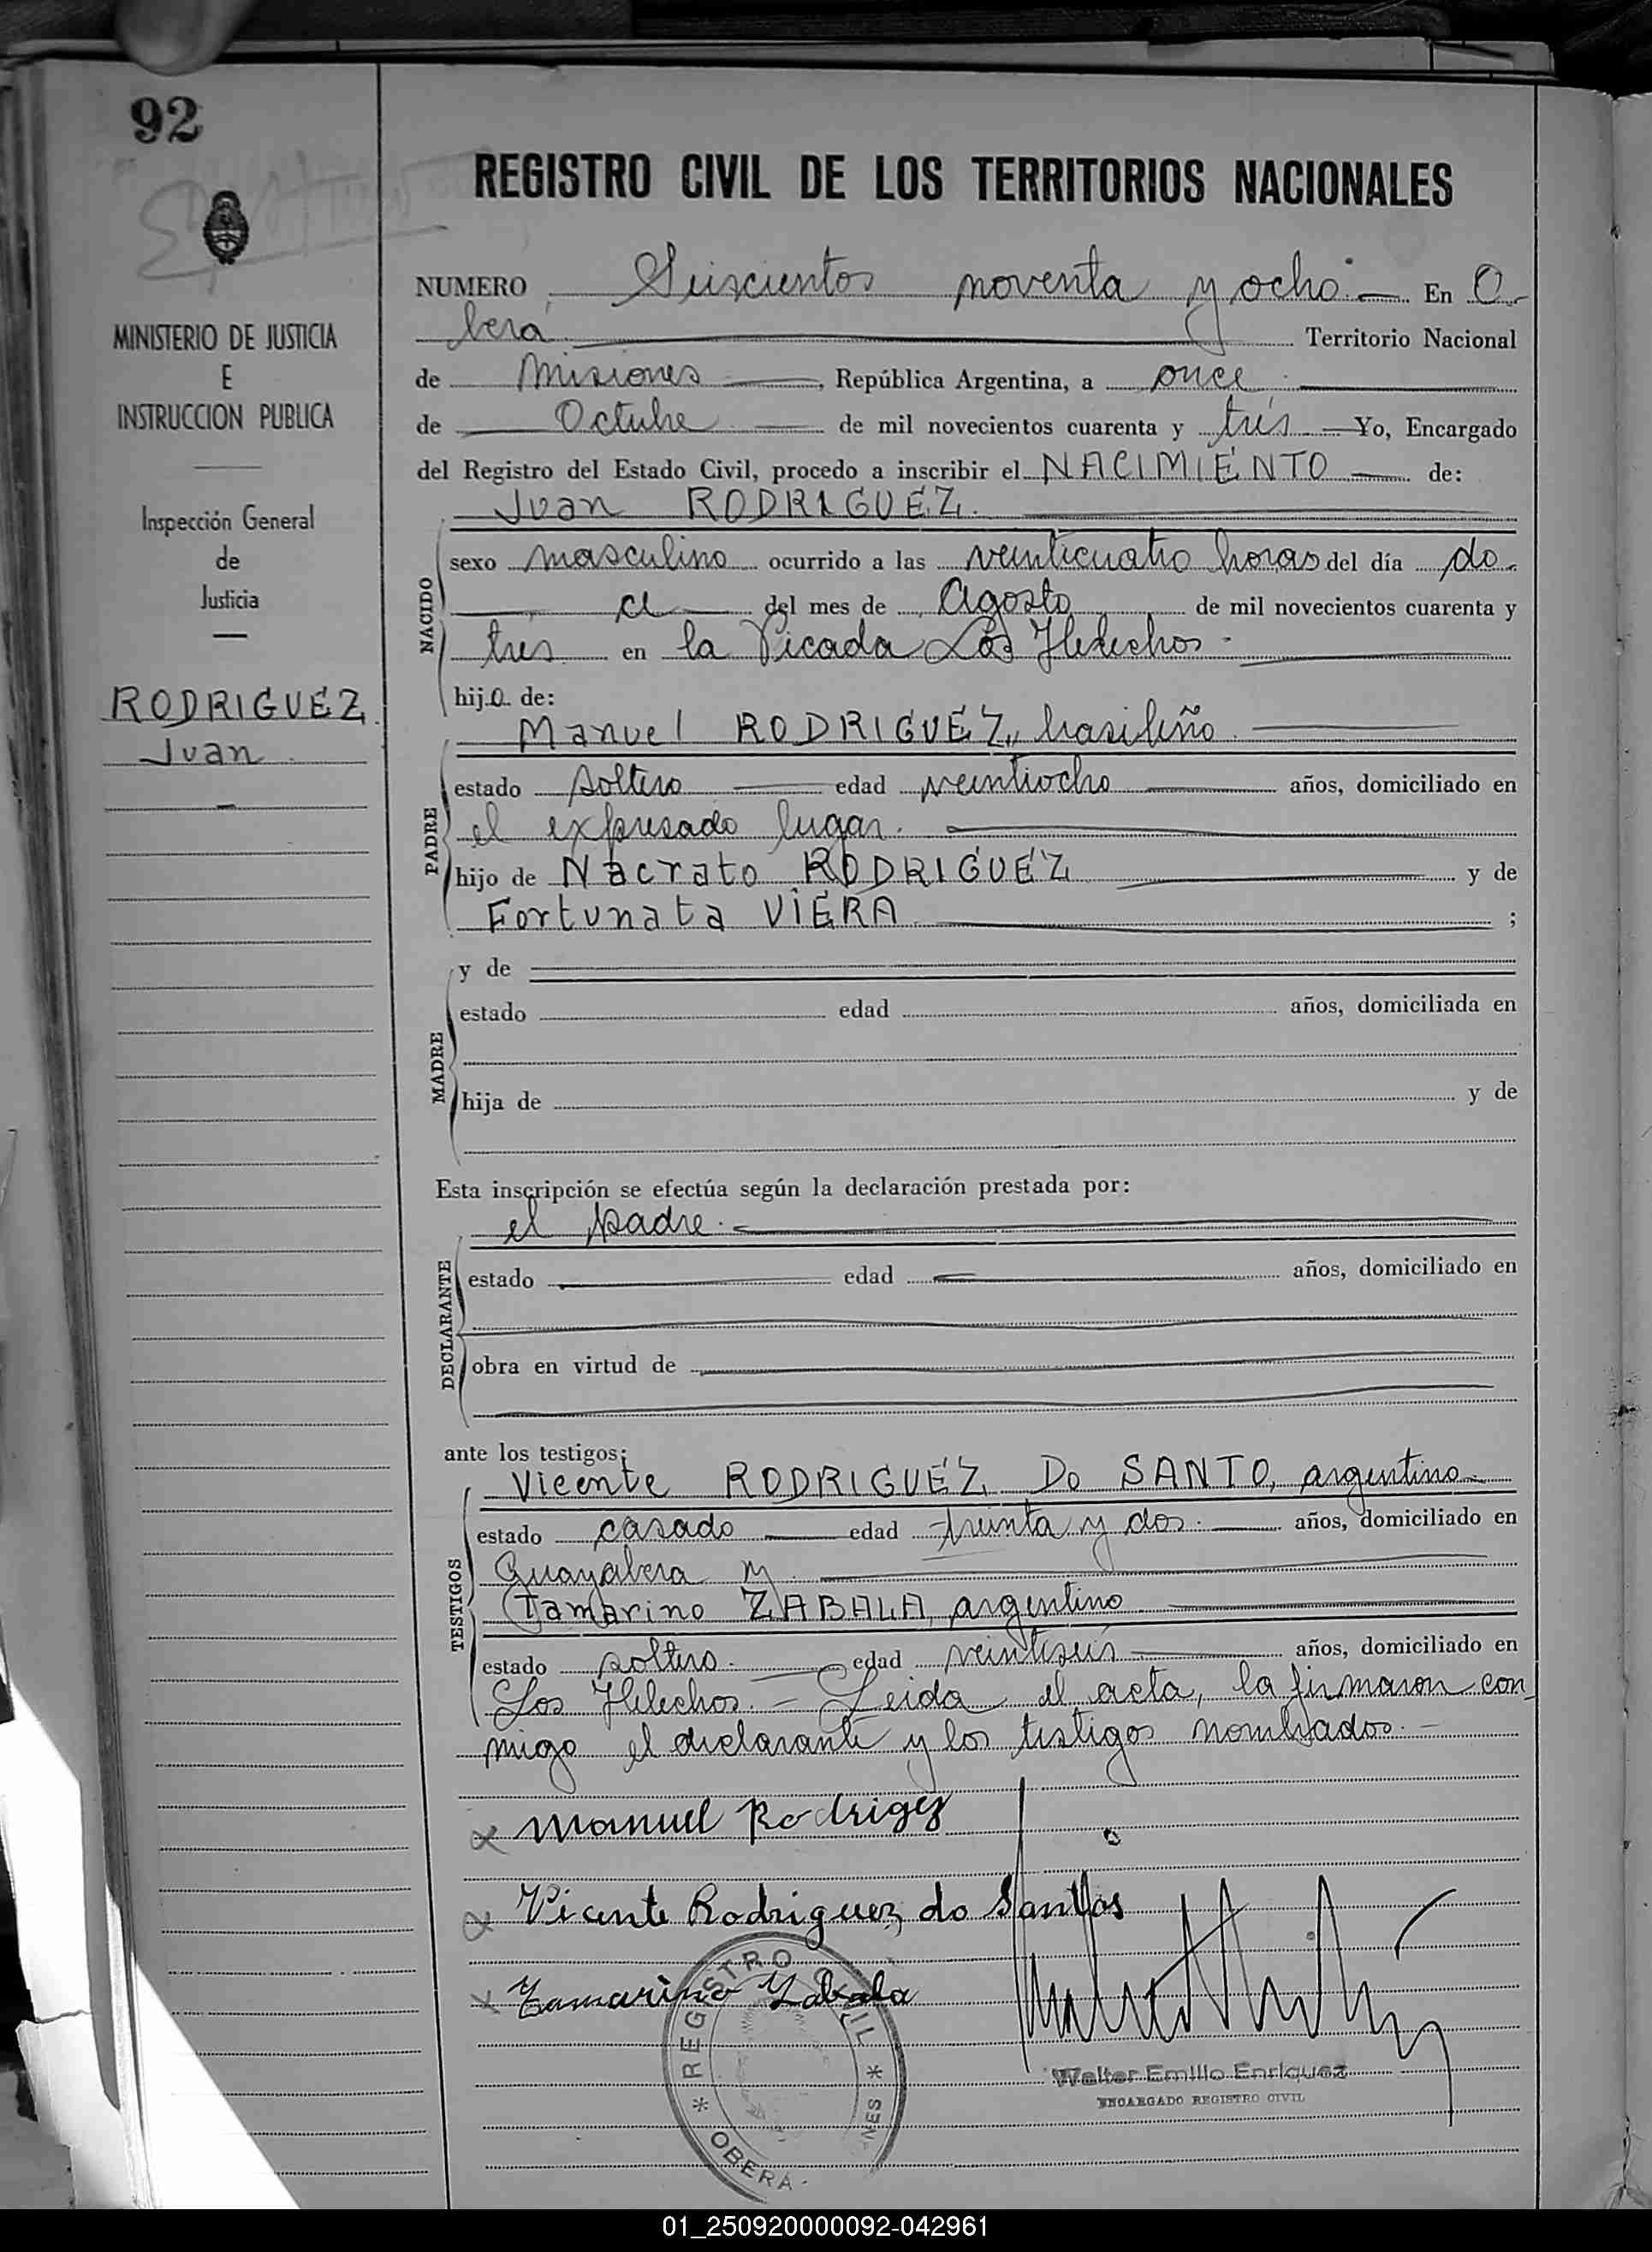 92
REGISTRO CIVIL DE LOS TERRITORIOS NACIONALES
NUMERO Seiscientos noventa y ocho.— En O-
berá Territorio Nacional
de Misiones —, República Argentina, a once
de — Octubre — de mil novecientos cuarenta y trés — Yo, Encargado
del Registro del Estado Civil, procedo a inscribir el NACIMIENTO — de:
Juan RODRIGUEZ.
NACIDO
sexo masculino ocurrido a las veinticuatro horas del día do-
ce del mes de Agosto de mil novecientos cuarenta y
trés en la Picada Los Helechos -
hijo de:
PADRE
Manuel RODRIGUEZ, brasileño
estado soltero — edad veintiocho — años, domiciliado en
el expresado lugar.
hijo de Nacrato RODRIGUEZ y de
Fortunata VIERA ;
MADRE
y de
estado edad años, domiciliada en
hija de y de
Esta inscripción se efectúa según la declaración prestada por:
el padre.
DECLARANTE
estado edad años, domiciliado en
obra en virtud de
ante los testigos:
TESTIGOS
Vicente RODRIGUEZ Do SANTO, argentino
estado casado — edad treinta y dos. — años, domiciliado en
Guayabera y
Tamarino ZABALA, argentino
estado soltero. — edad veintiseis — años, domiciliado en
Los Helechos. — Leida el acta, la firmaron con
migo el declarante y los testigos nombrados. —
x Manuel Rodrigez
x Vicente Rodriguez do Santos
x Tamarino Zabala
Walter Emilio Enriquez
ENCARGADO REGISTRO CIVIL
* REGISTRO CIVIL *
OBERÁ-
MINISTERIO DE JUSTICIA
E
INSTRUCCION PUBLICA
Inspección General
de
Justicia
RODRIGUEZ,
Juan
01_250920000092-042961